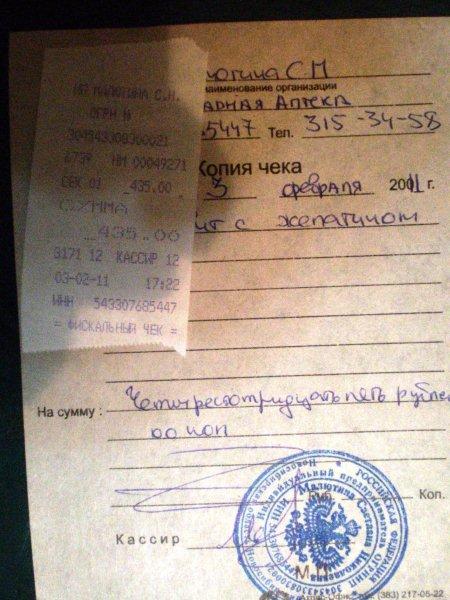 ИП МАЛЮТИНА С.Н.
ОГРН №
304543308300021
6739 НМ 00049271
СЕК 01 435.00
СУММА
435.00
3171 12 КАССИР 12
03-02-11 17:22
ИНН 543307685447
= ФИСКАЛЬНЫЙ ЧЕК =
лютина С Н
наименование организации
Аптека
5447 Тел. 315-34-58
Копия чека
3 февраля 2011 г.
с
На сумму: Четыреста тридцать пять рублей
00 коп
Руб. Коп.
Кассир
М.П.
РОССИЙСКАЯ ФЕДЕРАЦИЯ
Индивидуальный предприниматель
Малютина Светлана Николаевна
(383) 217-05-22